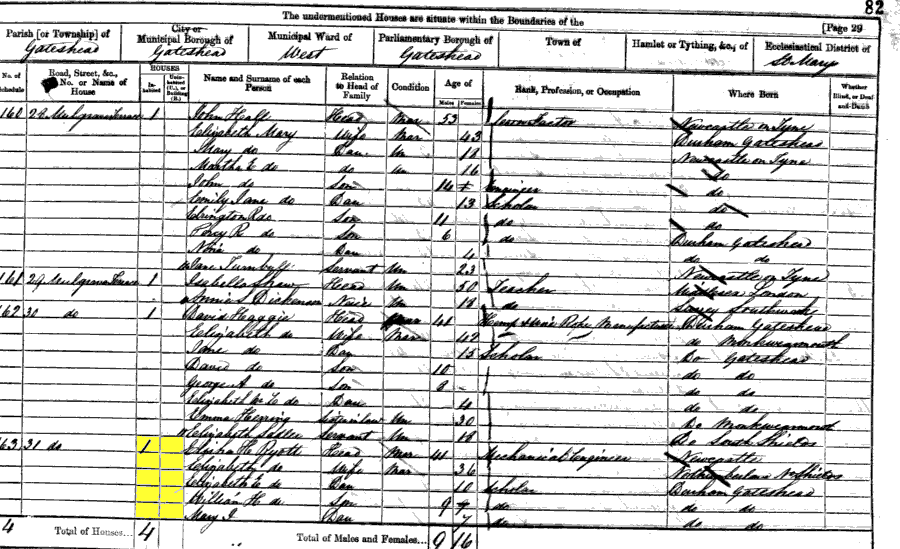 82
The undermentioned Houses are situate within the Boundaries of the
[Page 29
Parish [or Township] of Gateshead
City or Municipal Borough of Gateshead
Municipal Ward of West
Parliamentary Borough of Gateshead
Town of
Hamlet or Tything, &c., of
Ecclesiastical District of St Marys
No. of Schedule
Road, Street, &c., and No. or Name of House
HOUSES
In-habited
Uninhabited (U.), or Building (B.)
Name and Surname of each Person
Relation to Head of Family
Condition
Age of
Males
Females
Rank, Profession, or Occupation
Where Born
Whether Blind, or Deaf and Dumb
160 1 John Head Mar 53 Newcastle on Tyne
Elizabeth Mary Wife Mar 43 Durham Gateshead
Mary do Dau Un 18 Newcastle on Tyne
Martha E do do Un 16 Do
John do Son 14 Engineer do
Emily Jane do Dau 13 Scholar do
do Son 11 do do
Percy R do Son 6 do Durham Gateshead
do Dau 4 do do
Jane Turnbull Servant Un 23 Newcastle on Tyne
161 29 1 Isabella Shaw Head Un 50 Teacher Middlesex London
Annie S Dickenson Niece Un 18 do Surrey Southwark
162 30 do 1 David Haggie Head Mar 41 Hemp & Wire Rope Manufacturer Durham Gateshead
Elizabeth do Wife Mar 42 do Monkwearmouth
Jane do Dau 15 Scholar Do Gateshead
David do Son 10 do do
George A do Son 8 do do
Elizabeth do Dau 4 do do
Emma Herring Un 30 Do Monkwearmouth
Elizabeth Servant Un 18 Do South Shields
163 31 do 1 Pyott Head Mar 41 Mechanical Engineer Newcastle
Elizabeth do Wife Mar 36 Northumberland N Shields
Elizabeth E do Dau 10 Scholar Durham Gateshead
William H do Son 9 do do do
Mary I Dau 7 do do do
4 Total of Houses... 4 Total of Males and Females... 9 16